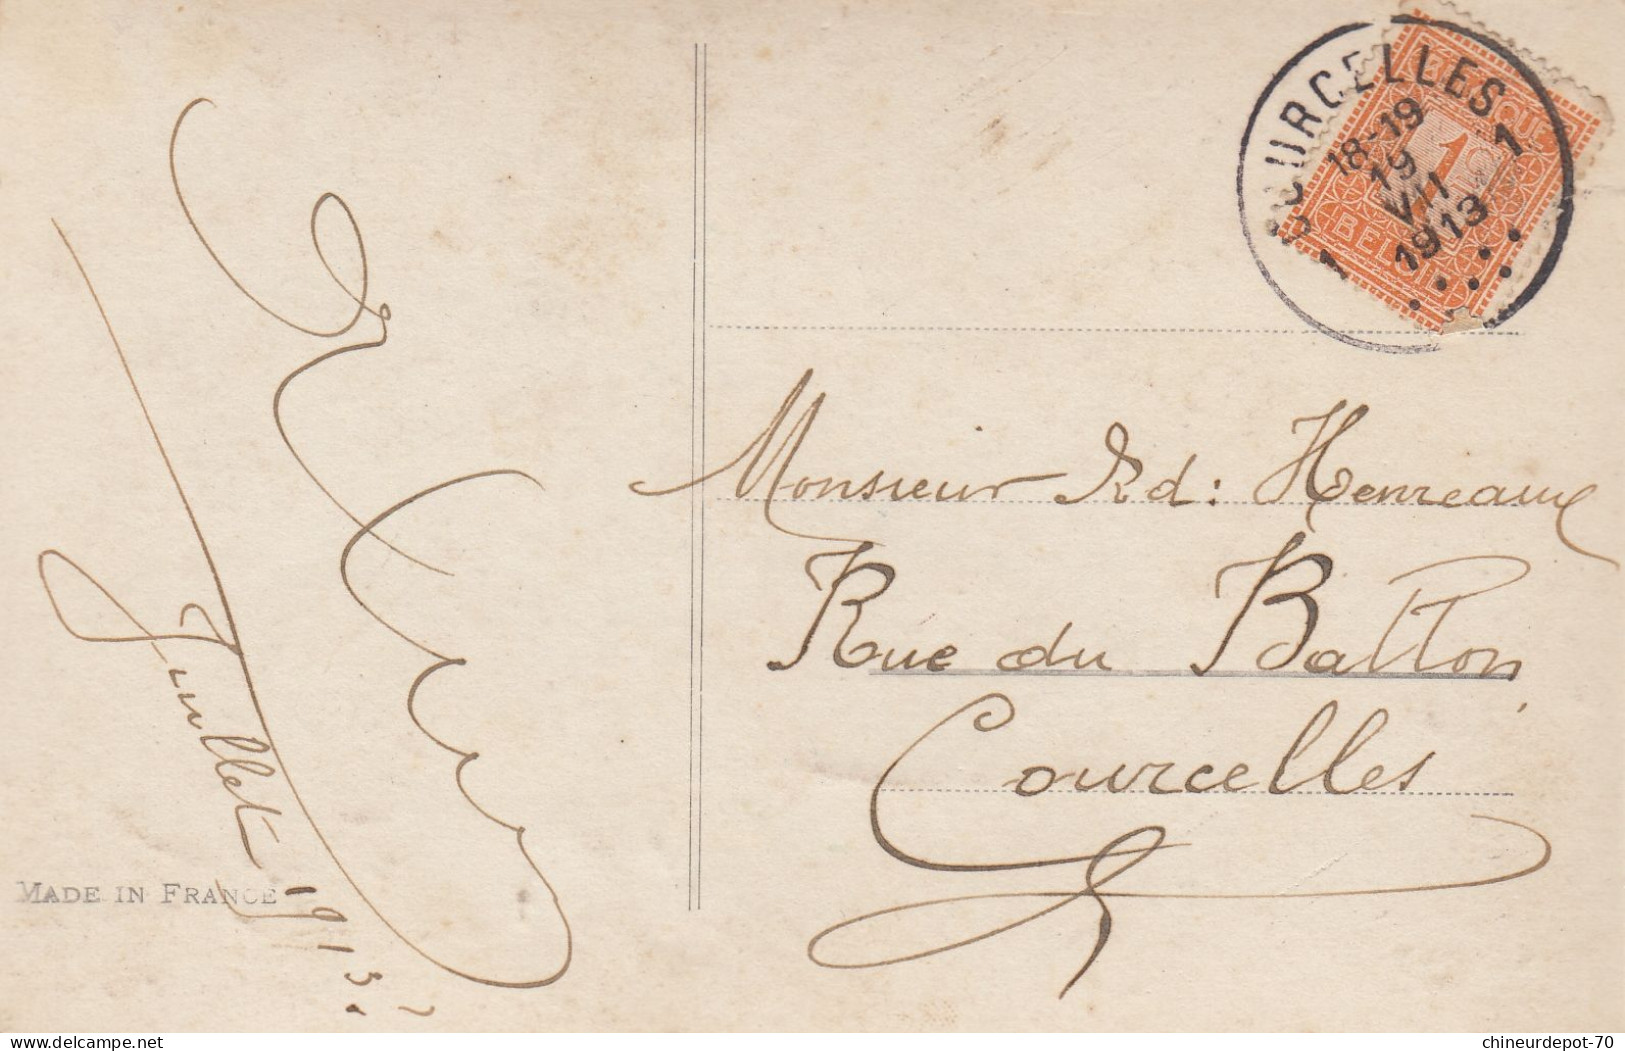 COURCELLES
1 1
18-19
19
VII
1913
BELGIQUE
1
BELGIË
Monsieur Rd: Henreaux
Rue du Batton,
Courcelles
Juillet 1913.
MADE IN FRANCE
delcampe.net
chineurdepot-70